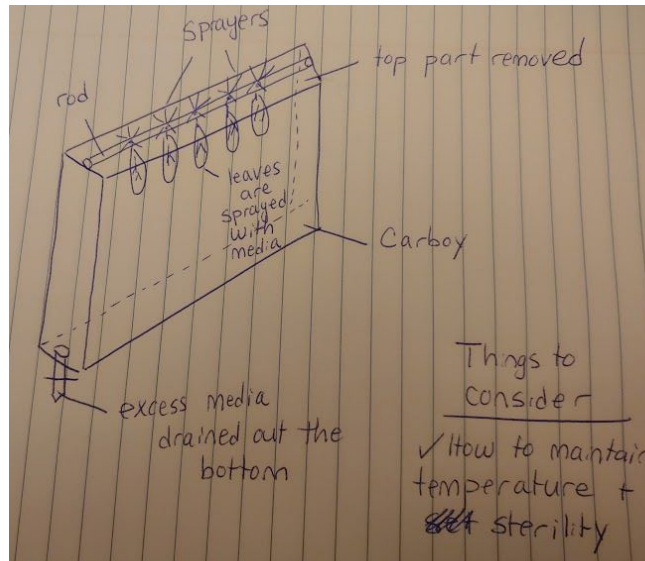 sprayers
rod
top part removed
leaves
are
sprayed
with
media
Carboy
excess media
drained out the
bottom
Things to
consider
✓ How to maintain
temperature +
sterility